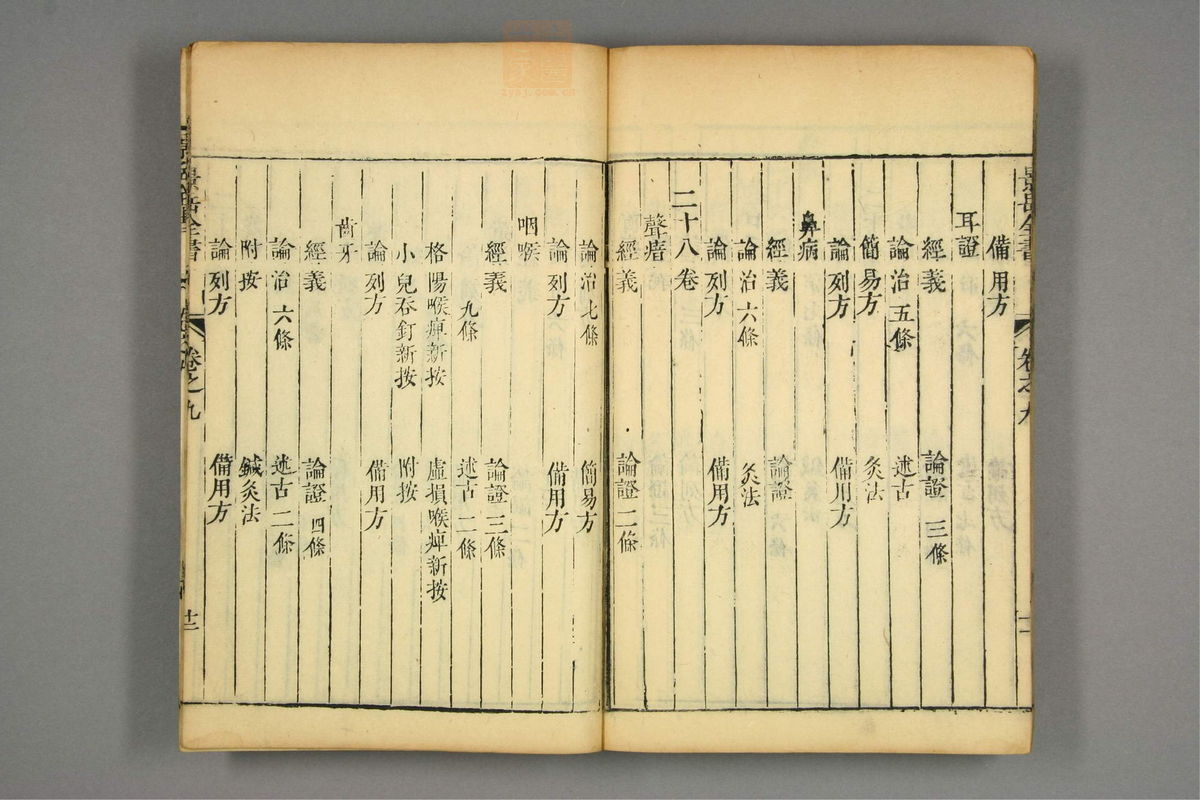 備用方
耳證
經義 論證 三條
論治 五條 述古
簡易方 灸法
論列方 備用方
鼻病
經義 論證
論治 六條 灸法
論列方 備用方
二十八卷
聲瘖
經義 論證 二條
論治 七條 簡易方
論列方 備用方
咽喉
經義 論證 三條
九條 述古 二條
格陽喉痺新按 虛損喉痺新按
小兒吞釘新按 附按
論列方 備用方
齒牙
經義 論證 四條
論治 六條 述古 二條
附按 鍼灸法
論列方 備用方
景岳全書 卷之九